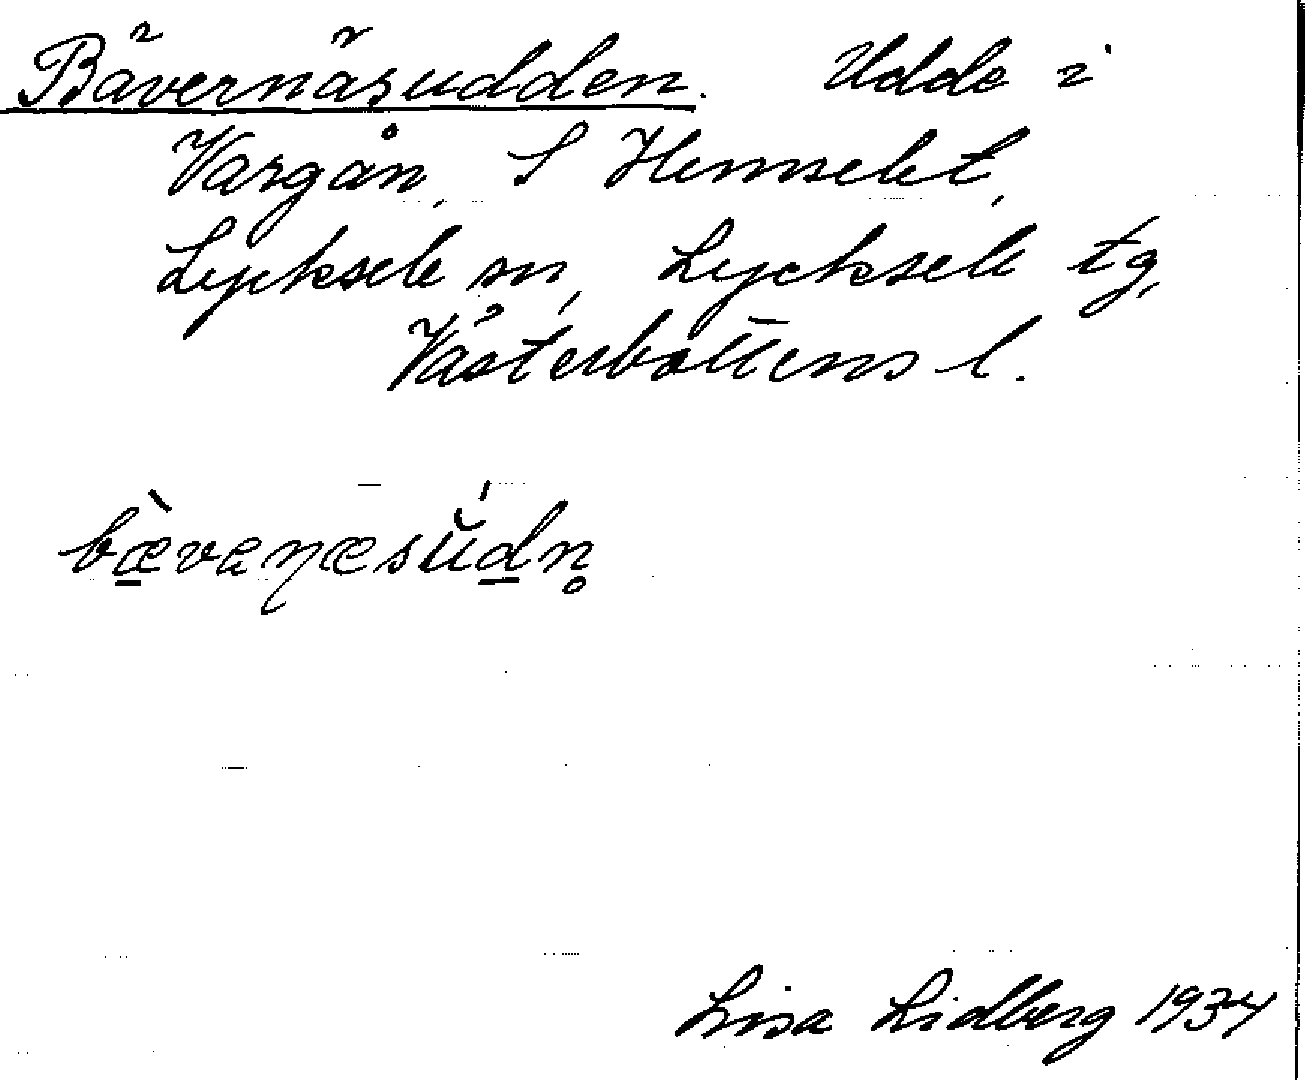 Bävernäsudden. Udde i
Vargån, S Hemselet,
Lycksele sn, Lycksele tg,
Västerbottens l.
bævaɳæsŭdn̥
Lisa Lidberg 1934